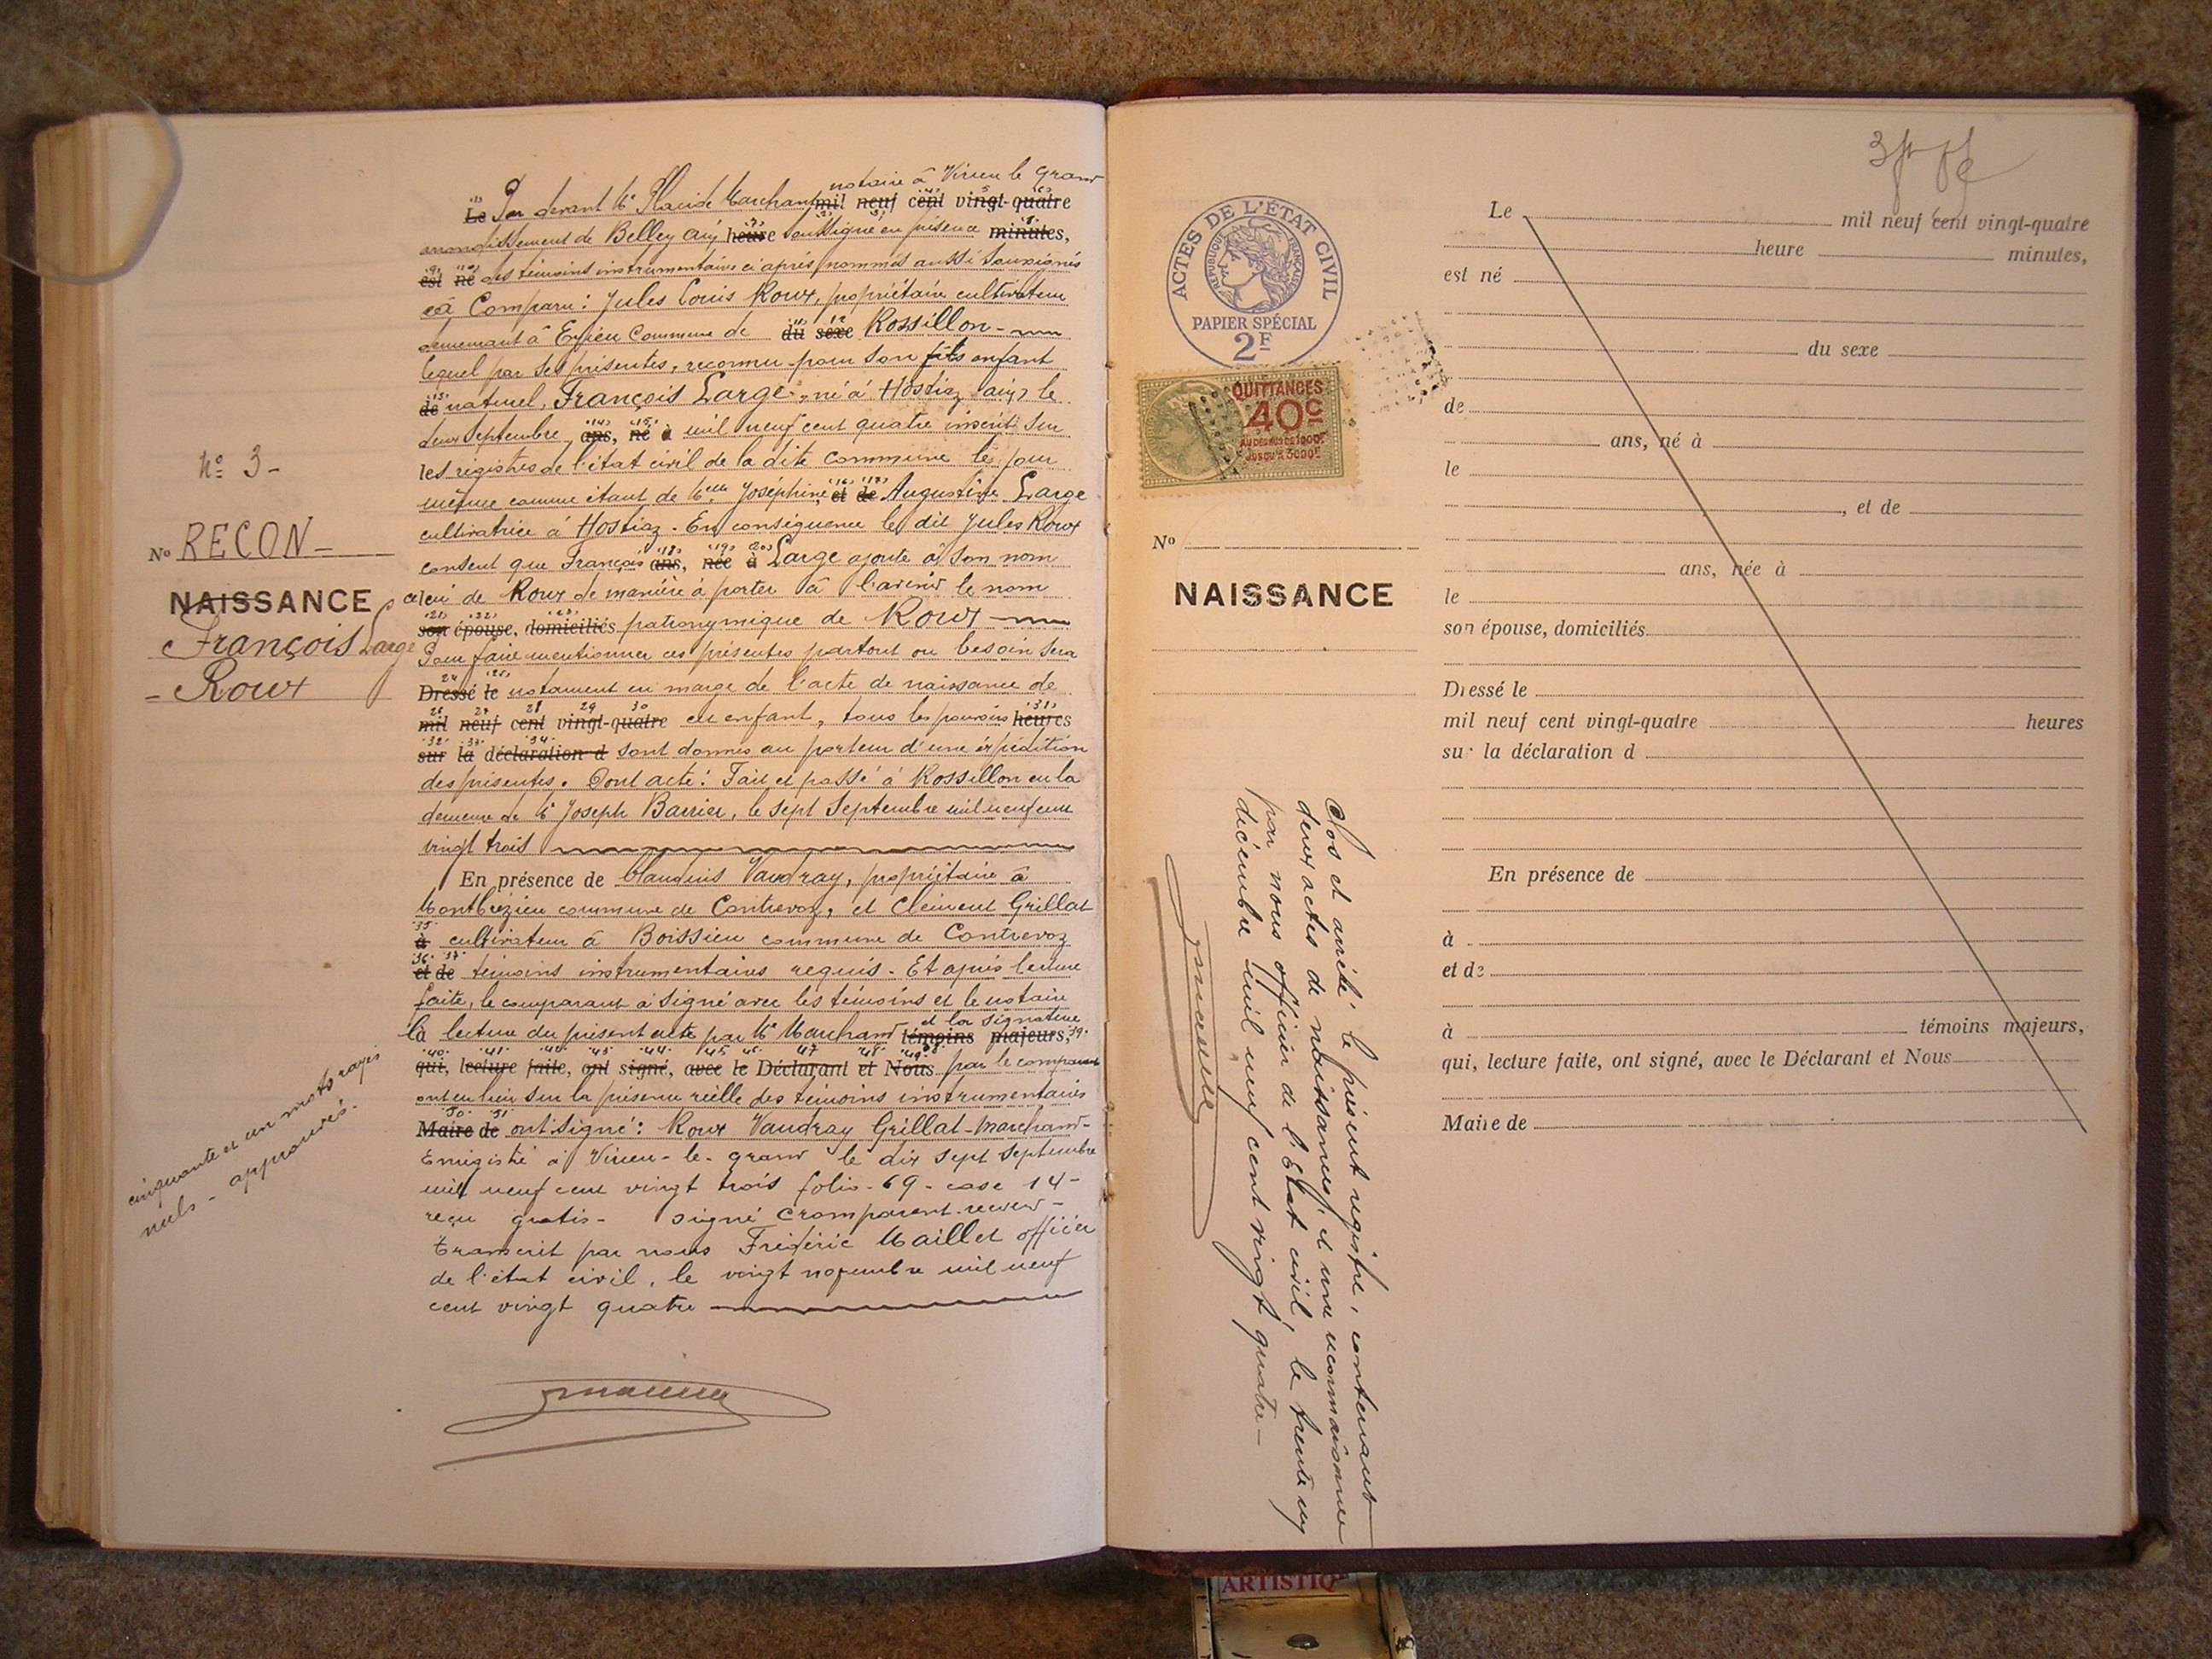 N° 3 -
N° RECON -
NAISSANCE
François Large
- Roux
cinquante et un mots rayés
nuls - approuvés -
notaire à Virieu le Grand
Le Par devant Me Placide Marchand mil neuf cent vingt-quatre
arrondissement de Belley Ain heure soussigné en présence minutes,
est né des témoins instrumentaires ci après nommés aussi soussignés
a Comparu : Jules Louis Roux, propriétaire cultivateur
demeurant à Commune de du sexe Rossillon -
lequel par ses présentes, reconnu pour son fils enfant
de naturel, François Large, né à Hostiaz Ain le
deux Septembre ans, né à mil neuf cent quatre inscrit sur
les registres de l'état civil de la dite commune le jour
même comme étant de Melle Joséphine et de Augustine Large
cultivatrice à Hostiaz. En conséquence le dit Jules Roux
consent que François ans, née à Large ajoute à son nom
celui de Roux de manière à porter à l'avenir le nom
son épouse, domiciliés patronymique de Roux
Pour faire mentionner ces présentes partout ou besoin sera
Dressé le notament en marge de l'acte de naissance de
mil neuf cent vingt-quatre cet enfant, tous les pouvoirs heures
sur la déclaration d sont donnés au porteur d'une expédition
des présentes. Dont acte : Fait et passé à Rossillon en la
demeure de Mr Joseph Barrier, le sept Septembre mil neuf cent
vingt trois
En présence de Claudius Vaudray, propriétaire à
Montbrézieu commune de Contrevoz, et Clément Grillat
à cultivateur à Boissieu commune de Contrevoz
et de témoins instrumentaires requis. Et après lecture
faite, le comparant a signé avec les témoins et le notaire
et la signature
la lecture du présent acte par Me Marchand témoins majeurs,
qui, lecture faite, ont signé, avec le Déclarant et Nous par le comparant
ont eu lieu en la présence réelle des témoins instrumentaires
Maire de ont signé : Roux Vaudray Grillat - Marchand -
Enregistré à Virieu-le-grand le dix sept Septembre
mil neuf cent vingt trois folio - 69 - case 14 -
reçu gratis - signé
Transcrit par nous Frédéric Maillet officier
de l'état civil, le vingt novembre mil neuf
cent vingt quatre
ACTES DE L'ÉTAT CIVIL
RÉPUBLIQUE FRANÇAISE
PAPIER SPÉCIAL
2F
QUITTANCES
40c
AU DESSUS DE 1000F
JUSQU'À 3000F
N°
NAISSANCE
Clos et arrêté le présent registre, contenant
deux actes de naissances, et une reconnaissance
par nous officier de l'Etat civil, le trente un
décembre mil neuf cent vingt quatre -
Le mil neuf cent vingt-quatre
heure minutes,
est né
du sexe
de
ans, né à
le
, et de
ans, née à
le
son épouse, domiciliés
Dressé le
mil neuf cent vingt-quatre heures
sur la déclaration d
En présence de
à
et de
à témoins majeurs,
qui, lecture faite, ont signé, avec le Déclarant et Nous
Maire de
ARTISTIQ